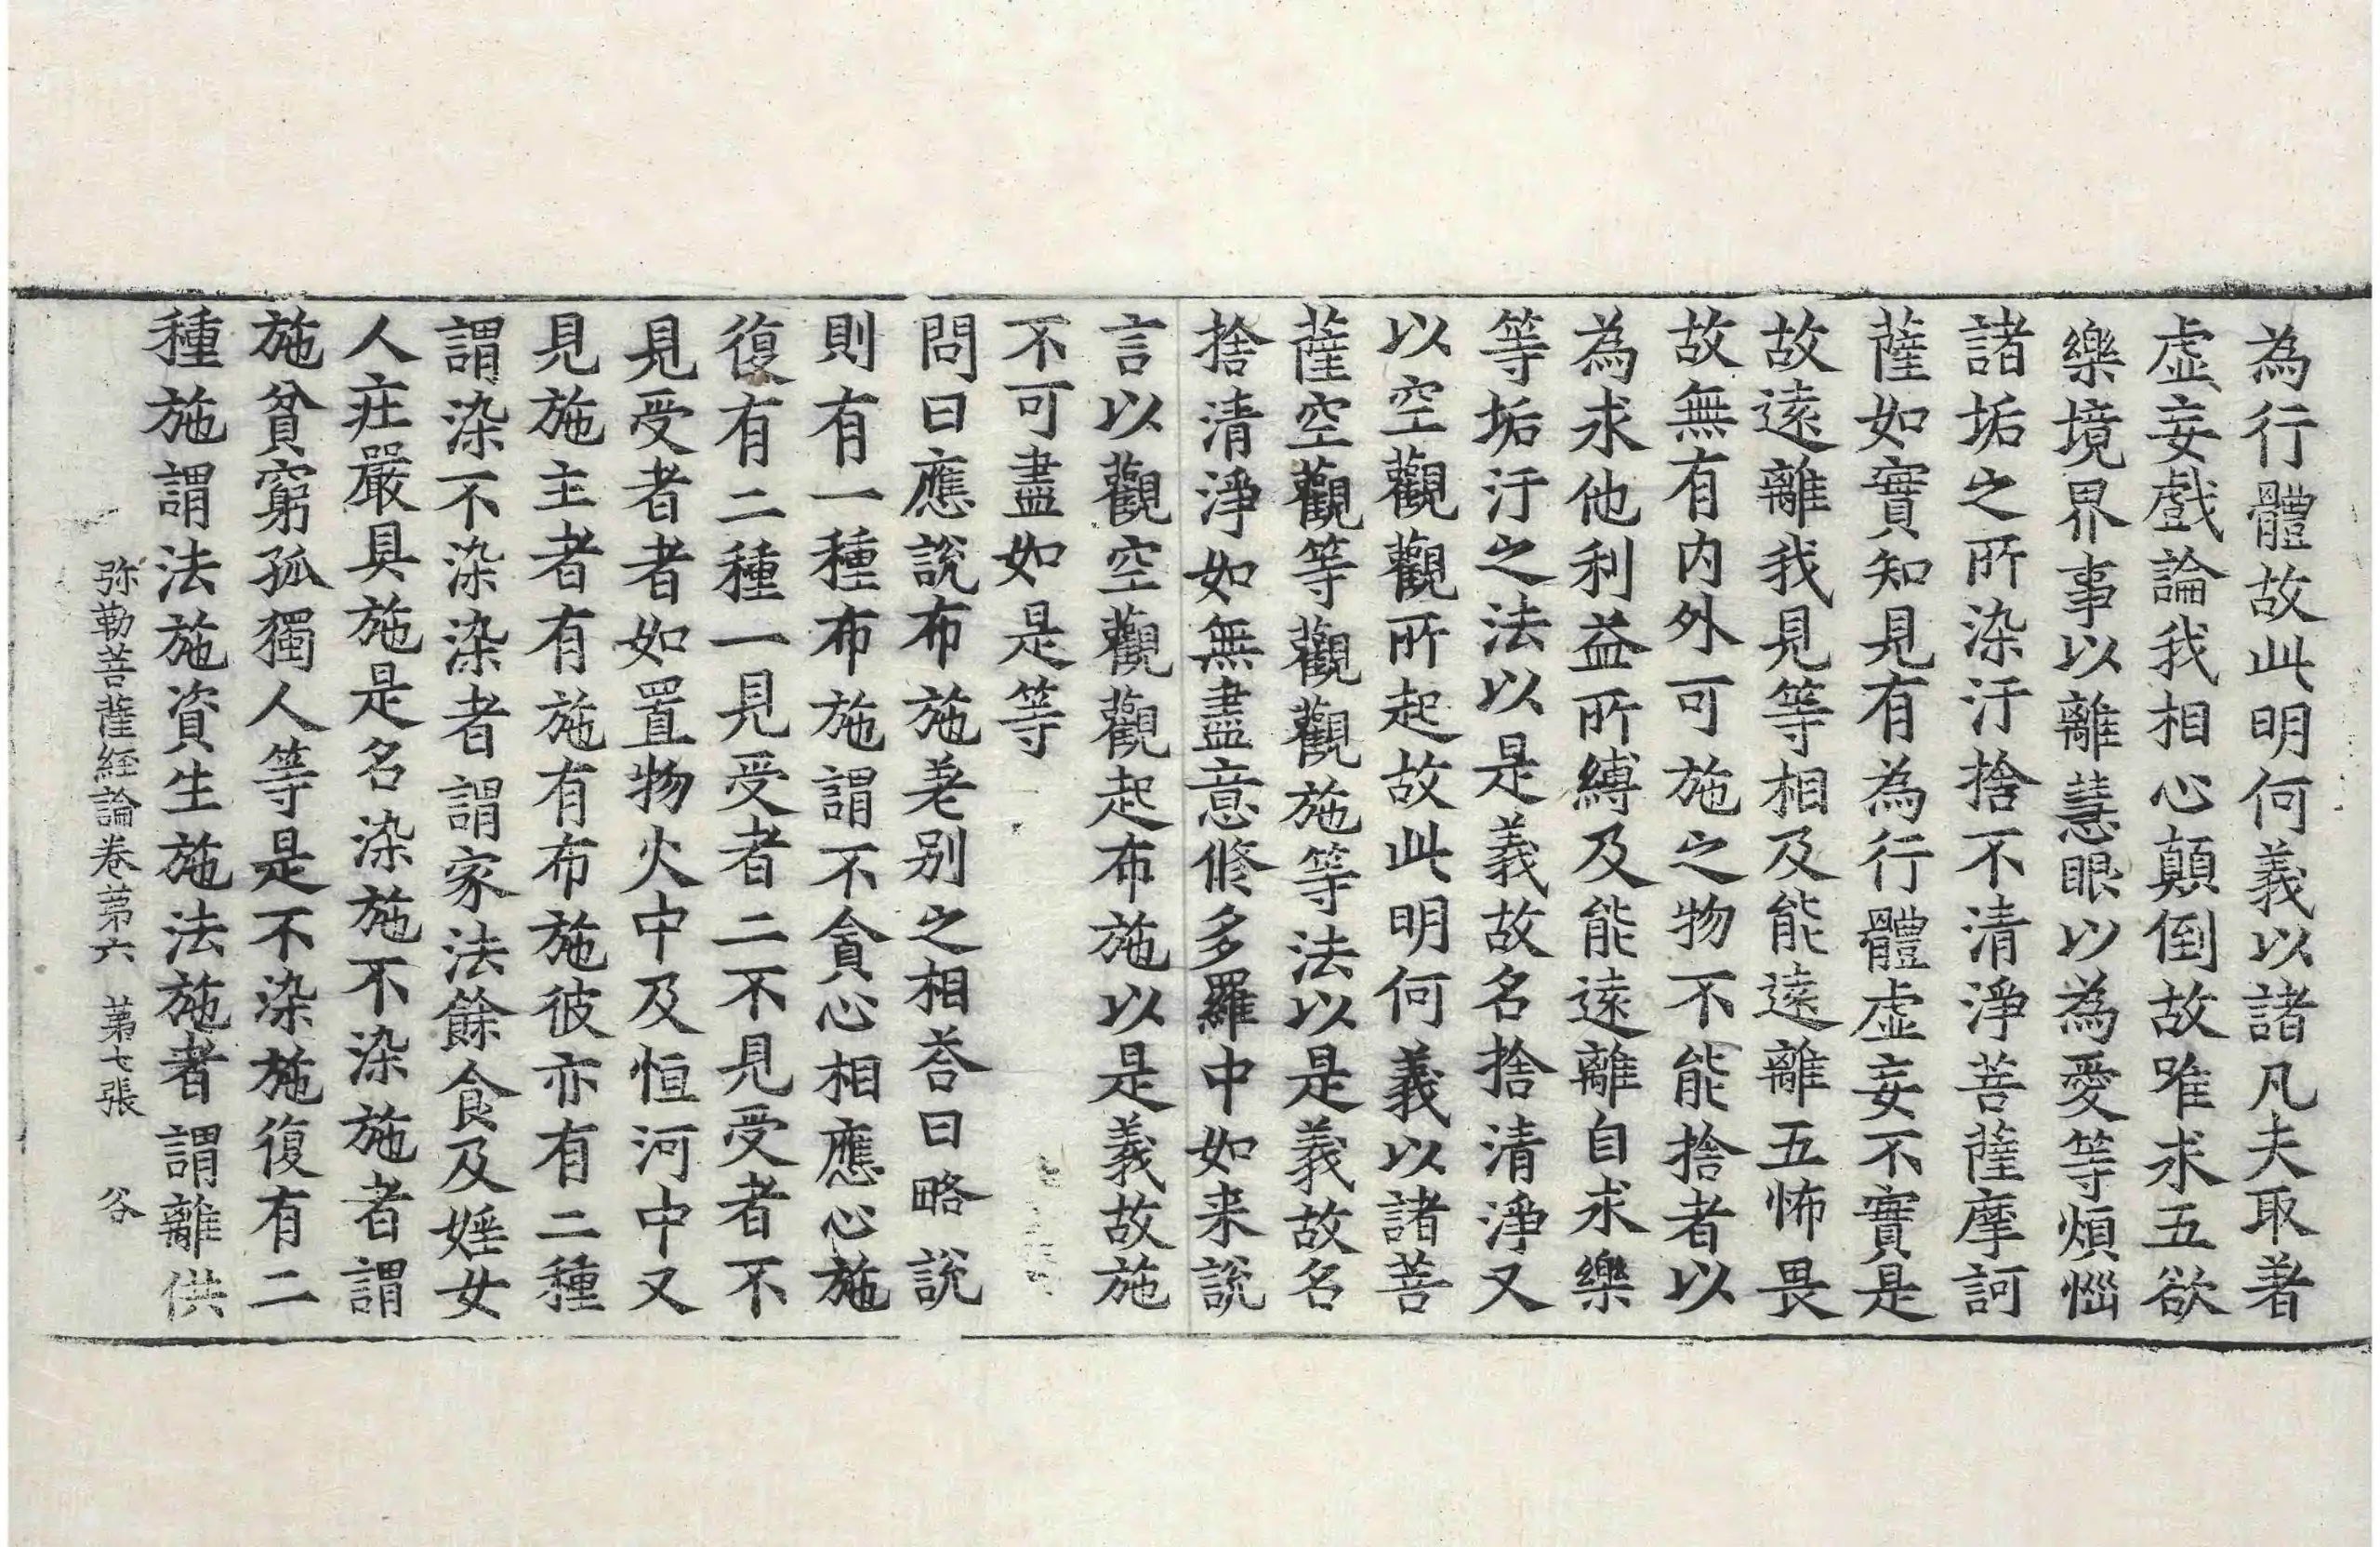 為行體故此明何義以諸凡夫取著
虛妄戲論我相心顛倒故唯求五欲
樂境界事以離慧眼以為愛等煩惱
諸垢之所染汙捨不清淨菩薩摩訶
薩如實知見有為行體虛妄不實是
故遠離我見等相及能遠離五怖畏
故無有内外可施之物不能捨者以
為求他利益所縛及能遠離自求樂
等垢汙之法以是義故名捨清淨又
以空觀觀所起故此明何義以諸菩
薩空觀等觀觀施等法以是義故名
捨清淨如無盡意修多羅中如来說
言以觀空觀觀起布施以是義故施
不可盡如是等
問曰應說布施差别之相荅曰略說
則有一種布施謂不貪心相應心施
復有二種一見受者二不見受者不
見受者者如置物火中及恒河中又
見施主者有施有布施彼亦有二種
謂染不染染者謂家法餘食及婬女
人莊嚴具施是名染施不染施者謂
施貧窮孤獨人等是不染施復有二
種施謂法施資生施法施者謂離供
弥勒菩薩経論卷苐六 苐七張 谷